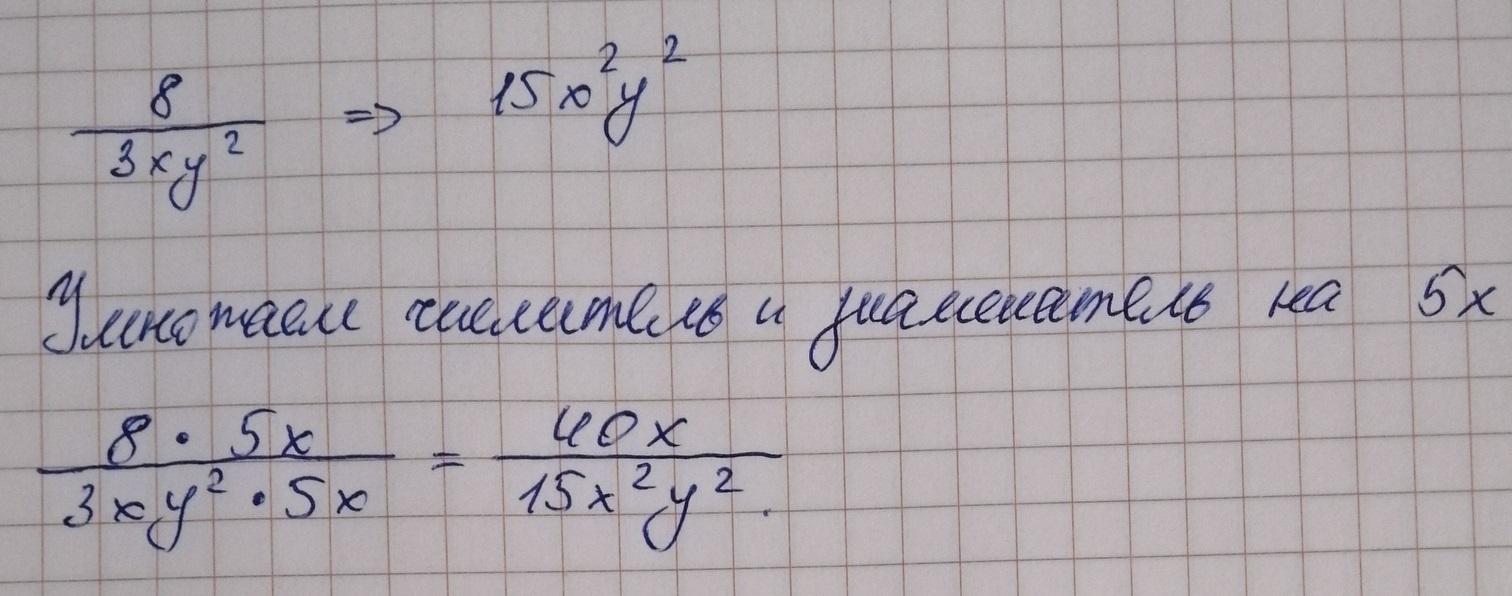 8/(3xy²) => 15x²y²
Умножаем числитель и знаменатель на 5x
(8 · 5x)/(3xy² · 5x) = 40x/(15x²y²).